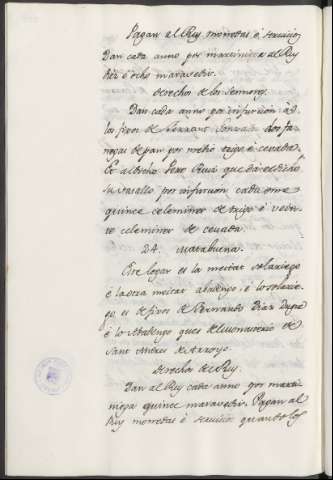 Pagan al Rey monedas é servicios
Dan cada anno por martiniega al Rey
diez é ocho maravedis.
Derechos de los Sennores.
Dan cada anno por infurcion á
los fijos de Ferrant Gonzalez dos fa-
negas de pan por medio trigo é cevada
Et al dicho Pero Ruiz que dá el dicho
su vasallo por infurcion cada anno
quince celemines de trigo é vein-
te celemines de cevada.
24. Matabuena.
Este logar es la meitat solariego
é la otra meitat abadengo. é lo solarie-
go, es de fijos de Fernando Diaz Duque
é lo Abadengo ques del monasterio de
Sant de Arroyo.
Derechos del Rey.
Dan al Rey cada anno por marti-
niega quince maravedis. Pagan al
Rey monedas é servicios quando los